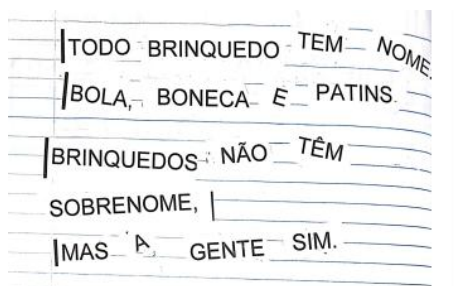 TODO BRINQUEDO TEM NOME.
BOLA, BONECA E PATINS.
BRINQUEDOS NÃO TÊM
SOBRENOME,
MAS A GENTE SIM.